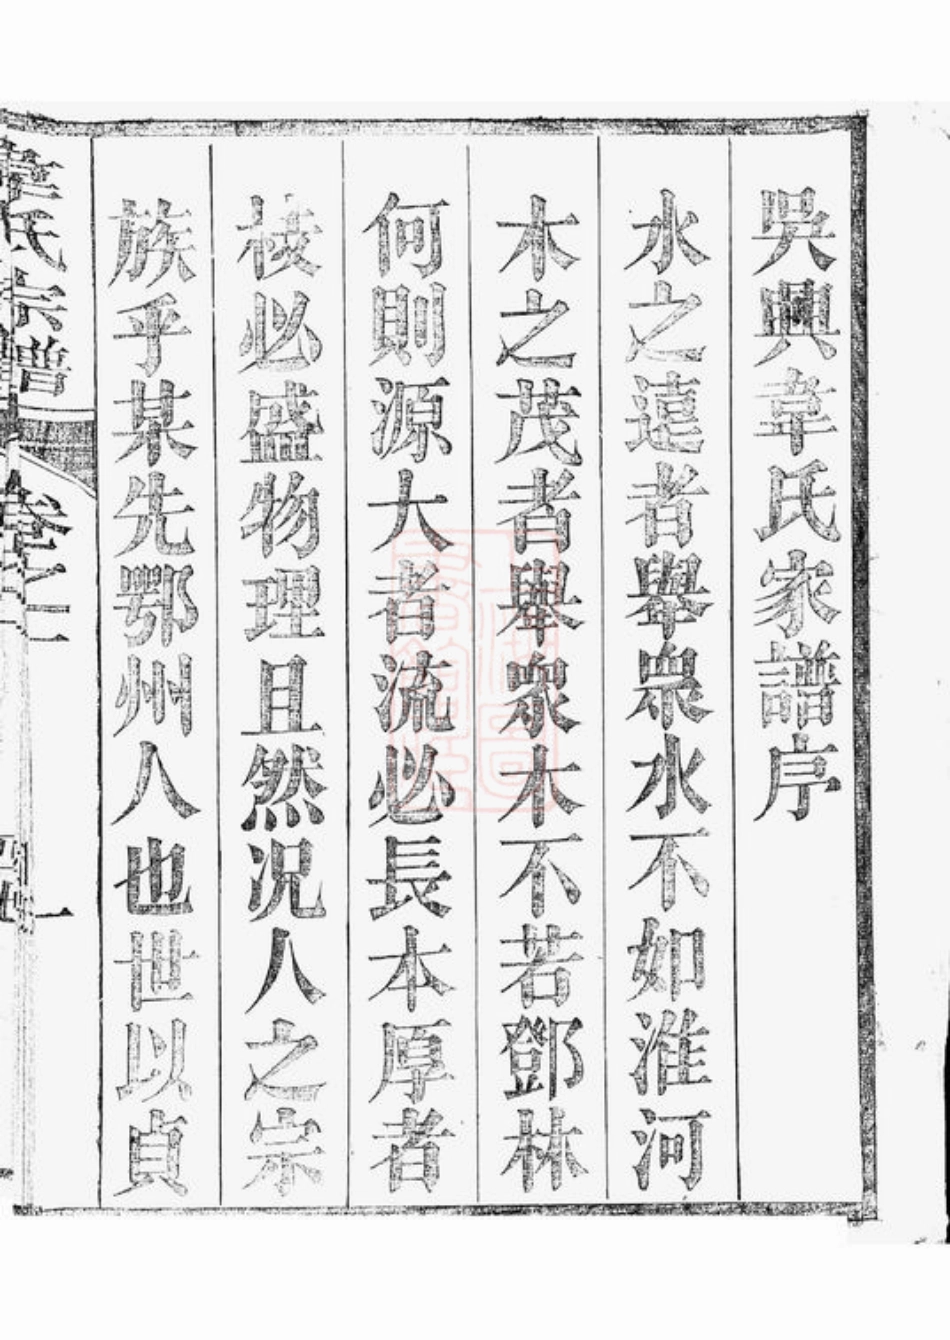 吳興韋氏家譜序
水之遠者舉眾水不如淮河
木之茂者舉眾木不若鄧林
何則源大者流必長本厚者
枝必盛物理且然况人之宗
族乎某先鄂州人也世以貞
韋氏宗譜 卷之二